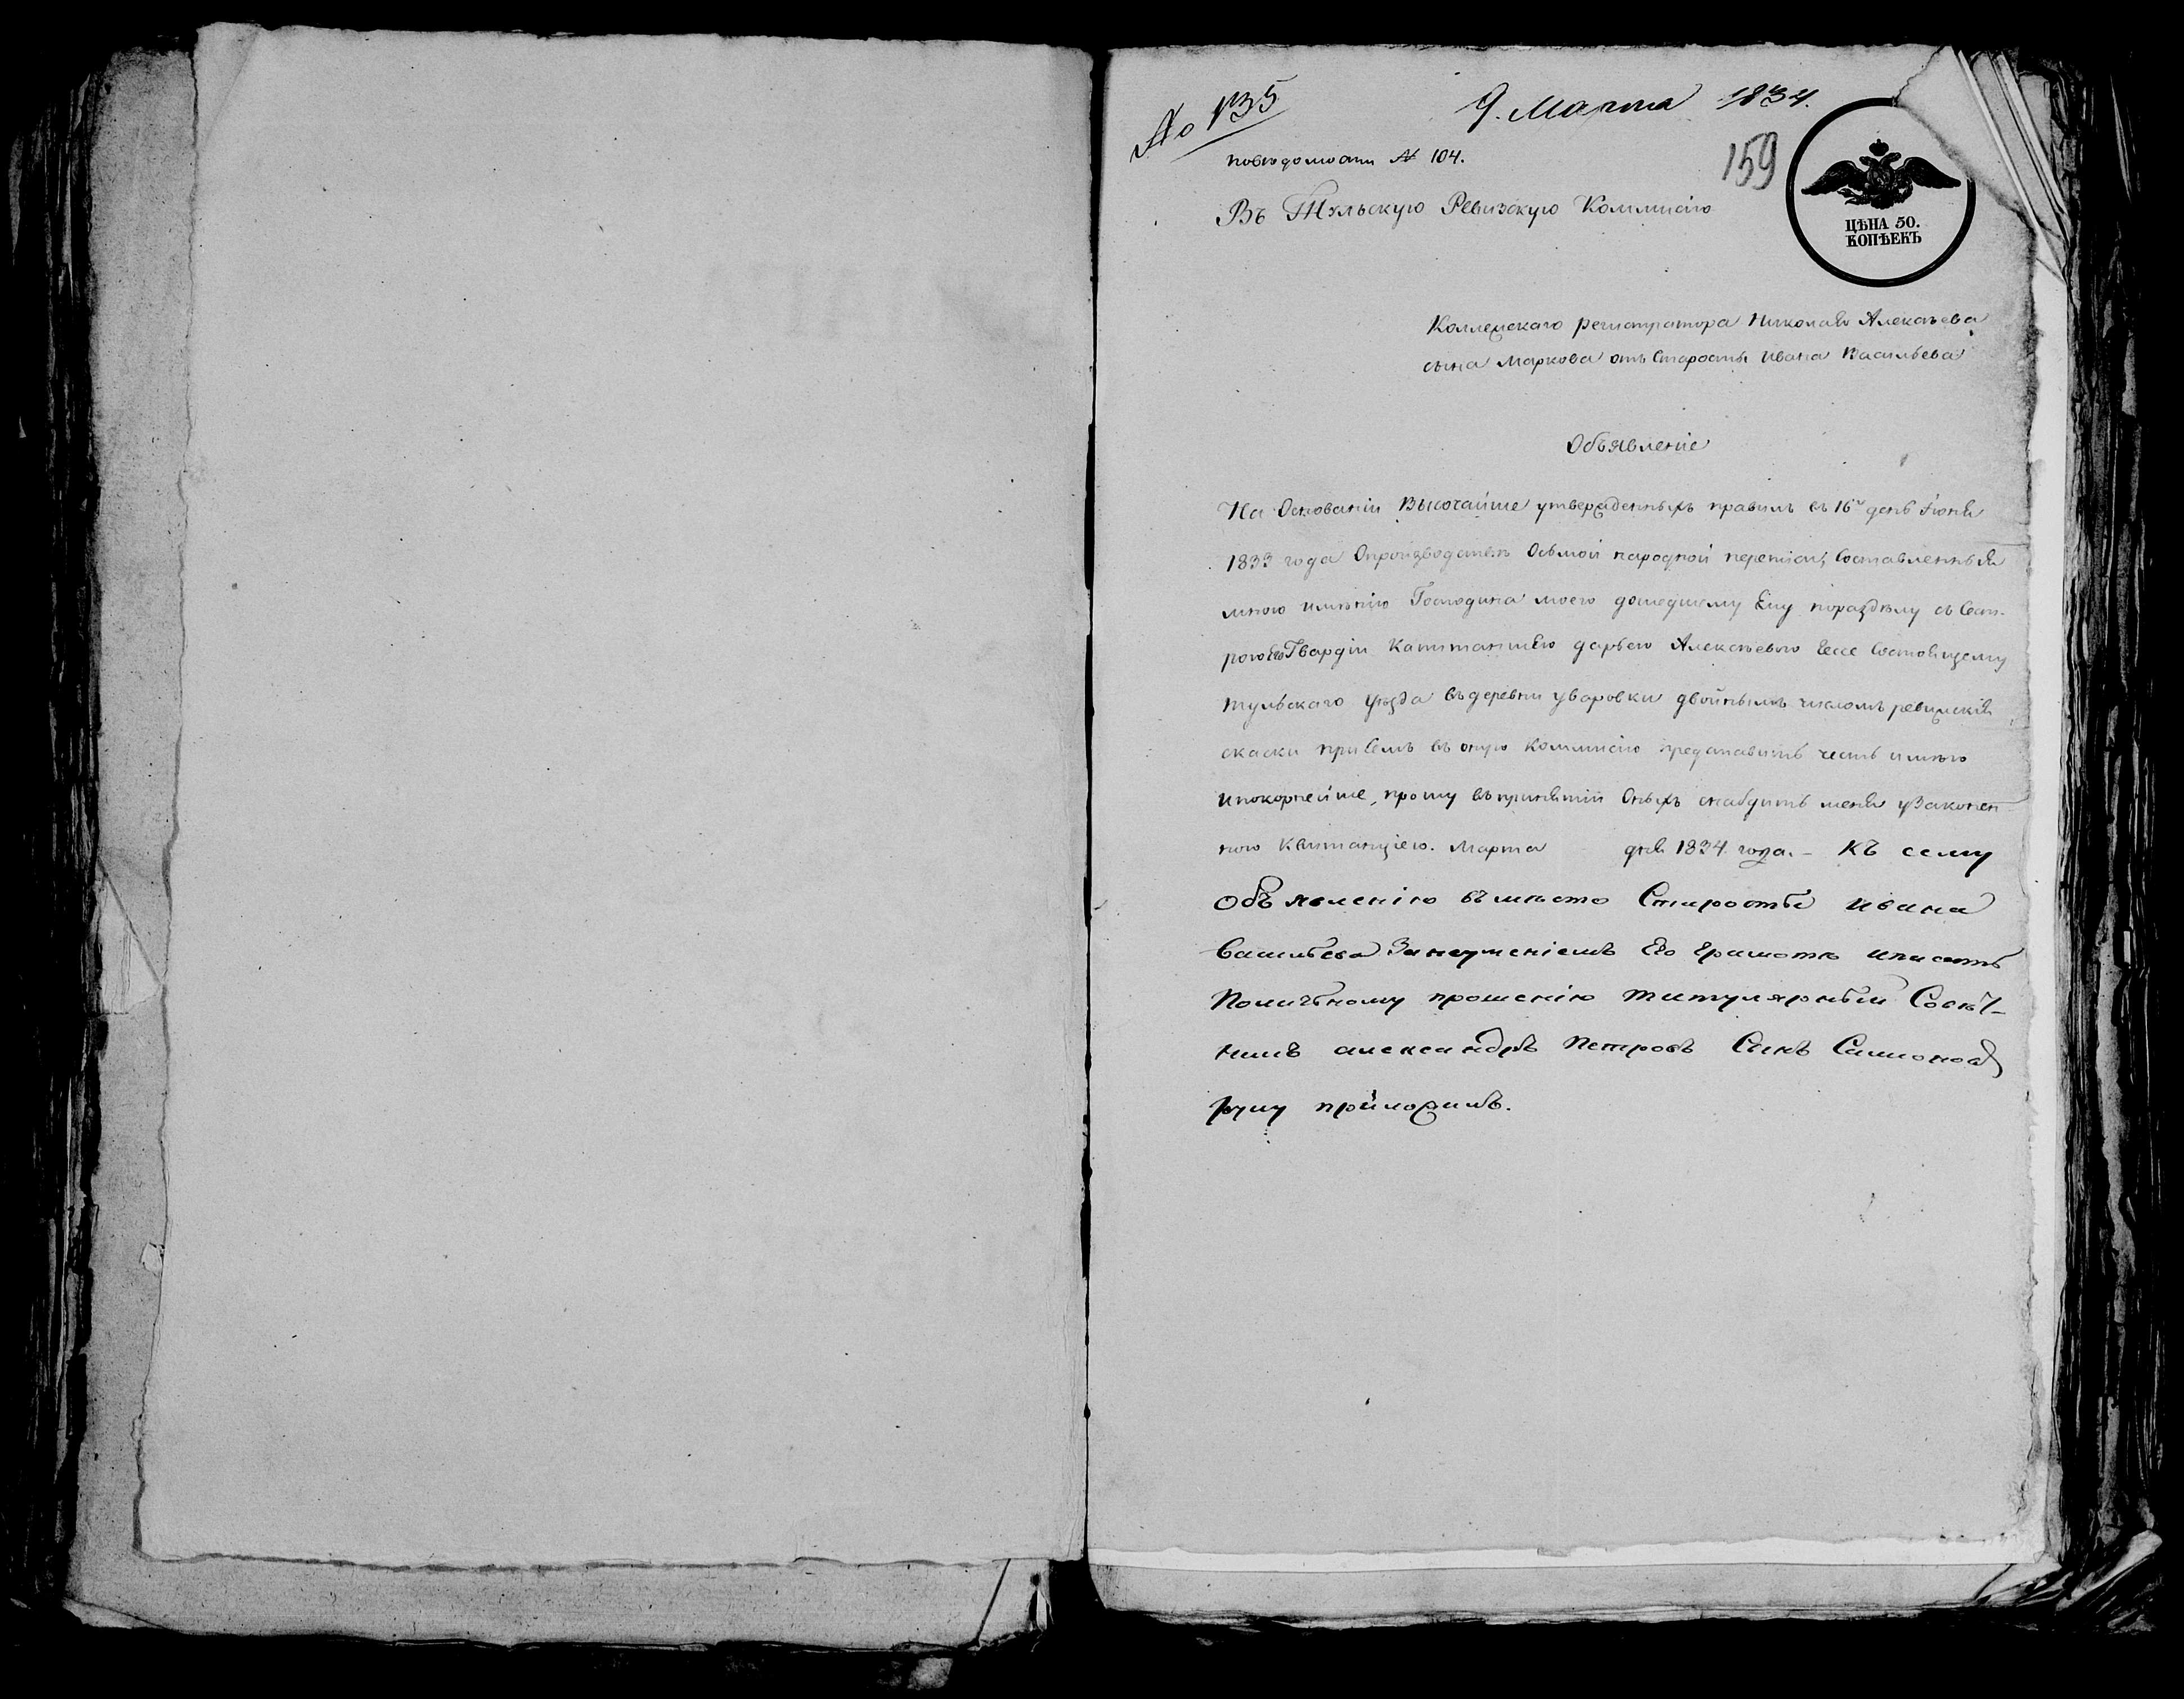 № 135
9. Марта 1834.
159
поведомости № 104.
ЦѢНА 50.
КОПѢЕКЪ
Въ Тульскую Ревизскую Коммисiю
Коллежскаго регистратора Николая Алексѣева
сына Маркова отъ Старосты Ивана Васильева
Объявленiе
На Основанiи Высочайше утвержденныхъ правилъ въ 16й день Iюня
1833 года Опроизводствѣ Осьмой народной переписи, Составленныя
мною имѣнiю Господина моего дошедшему Ему поразделу съ Сест-
рою Его Гвардiи Капитаншею дарьею Алексѣевою Ессе Состоящему
тульскаго уѣзда въдеревни уваровки двойнымъ числомъ ревижскiя
скаски присемъ въ оную Коммисiю представить честь имѣю
ипокорнейше, прошу въпринятiи Оныхъ снабдить меня узаконен
ною Квитанцiею. Марта дня 1834 года. – Къ сему
Объявленiю вместо Старосты ивана
Васильева Занеуменiемъ Его Грамоте иписать
Поличьному прошенiю титулярный Совѣт-
никъ александръ Петровъ Сынъ Симонов
руку приложилъ.